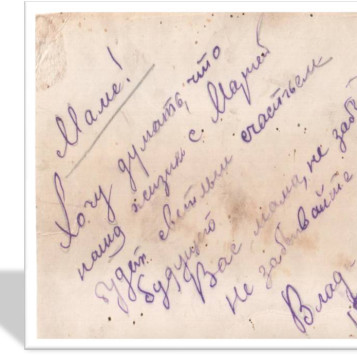 Маме!
Хочу думать, что
наша жизнь с Марией
будет светлым счастьем
будущего
Вас мама, не заб
не забывайте
Влад